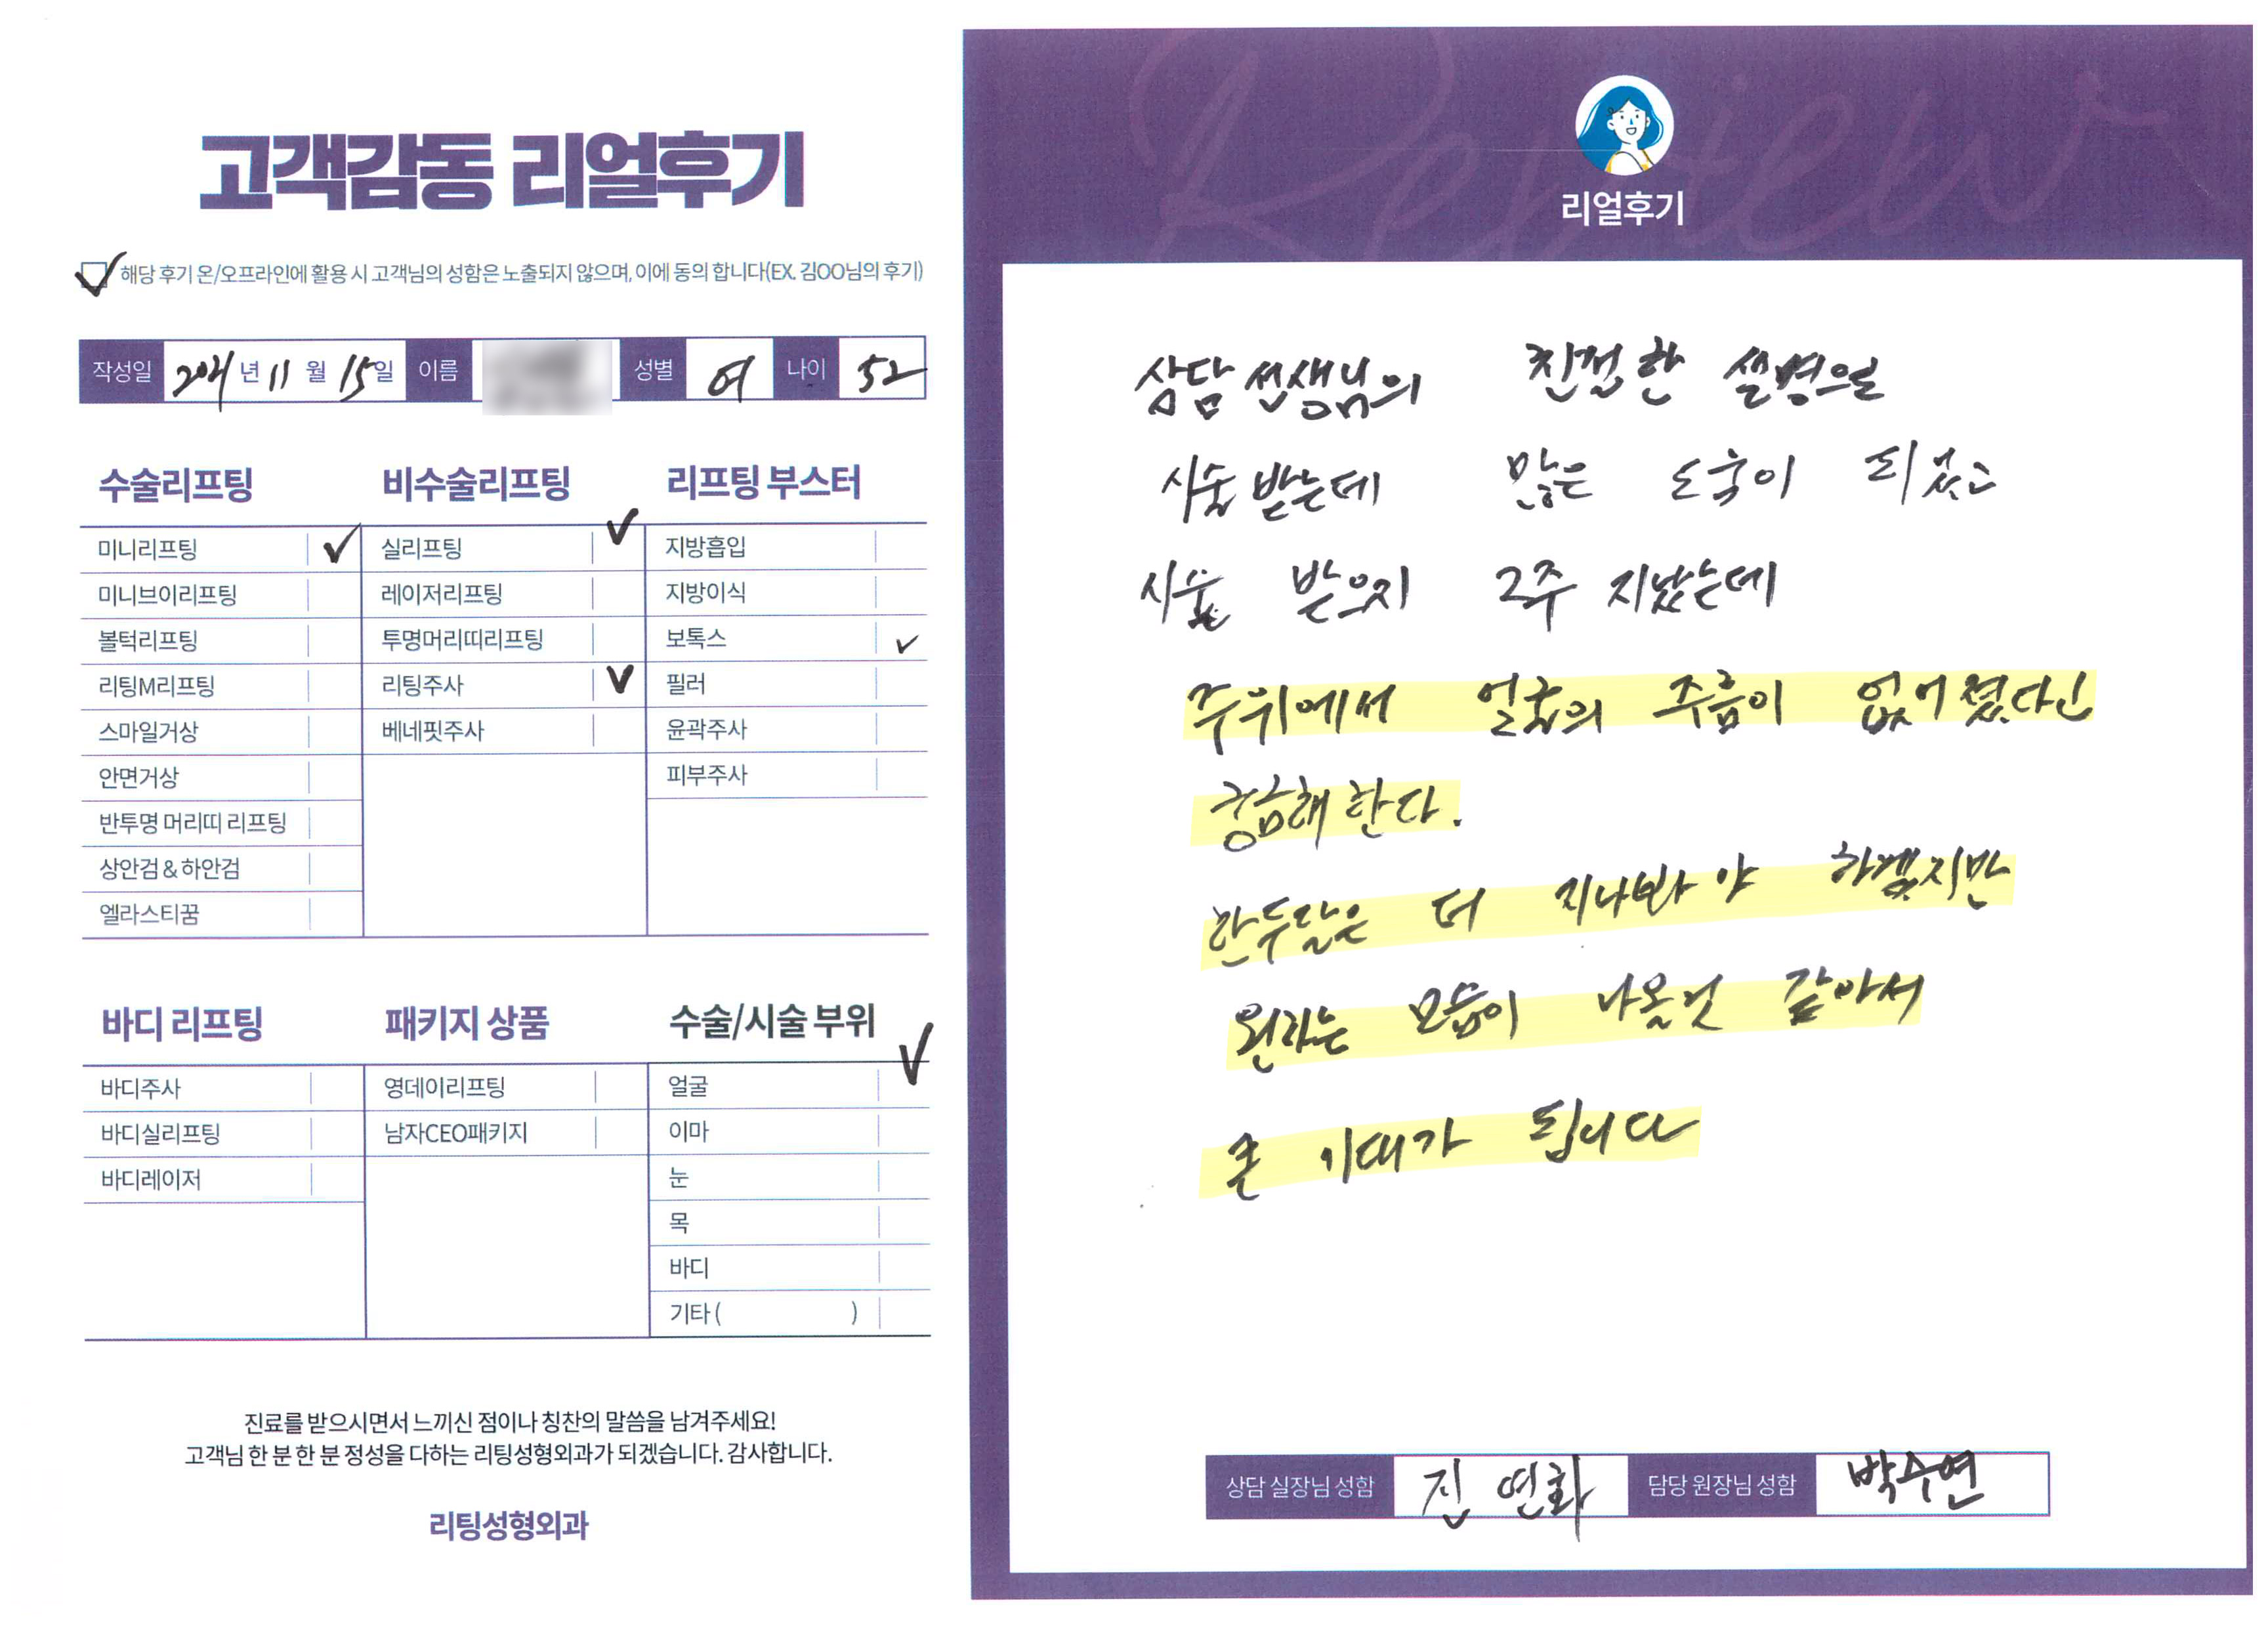 고객감동 리얼후기
해당 후기 온/오프라인에 활용 시 고객님의 성함은 노출되지 않으며, 이에 동의 합니다(EX. 김OO님의 후기)
작성일 2021년 11월 15일 이름 성별 여 나이 52
수술리프팅
미니리프팅 ✓
미니브이리프팅
볼턱리프팅
리팅M리프팅
스마일거상
안면거상
반투명 머리띠 리프팅
상안검 & 하안검
엘라스티꿈
비수술리프팅
실리프팅 ✓
레이저리프팅
투명머리띠리프팅
리팅주사 ✓
베네핏주사
리프팅 부스터
지방흡입
지방이식
보톡스 ✓
필러
윤곽주사
피부주사
바디 리프팅
바디주사
바디실리프팅
바디레이저
패키지 상품
영데이리프팅
남자CEO패키지
수술/시술 부위
얼굴 ✓
이마
눈
목
바디
기타 ( )
진료를 받으시면서 느끼신 점이나 칭찬의 말씀을 남겨주세요!
고객님 한 분 한 분 정성을 다하는 리팅성형외과가 되겠습니다. 감사합니다.
리팅성형외과
Review
리얼후기
상담 선생님의 친절한 설명으로
시술 받는데 많은 도움이 되었고
시술 받은지 2주 지났는데
주위에서 얼굴의 주름이 없어졌다고
궁금해 한다.
한두달은 더 지나봐야 하겠지만
원하는 모습이 나올것 같아서
큰 기대가 됩니다
상담 실장님 성함 진연화 담당 원장님 성함 박수연